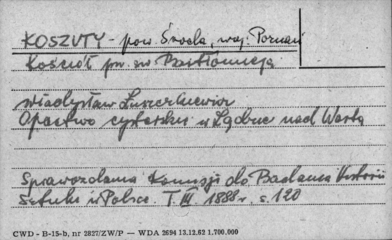 KOSZUTY - pow. Środa, woj. Poznań
Kościół pw. św Bartłomieja
Władysław Łuszczkiewicz
Opactwo cysterskie w Lądzie nad Wartą
Sprawozdania Komisji do Badania Historii
Sztuki w Polsce. T. III. 1888 r. s. 120
CWD - B-15-b, nr 2827/ZW/P — WDA 2694 13.12.62 1,700.000